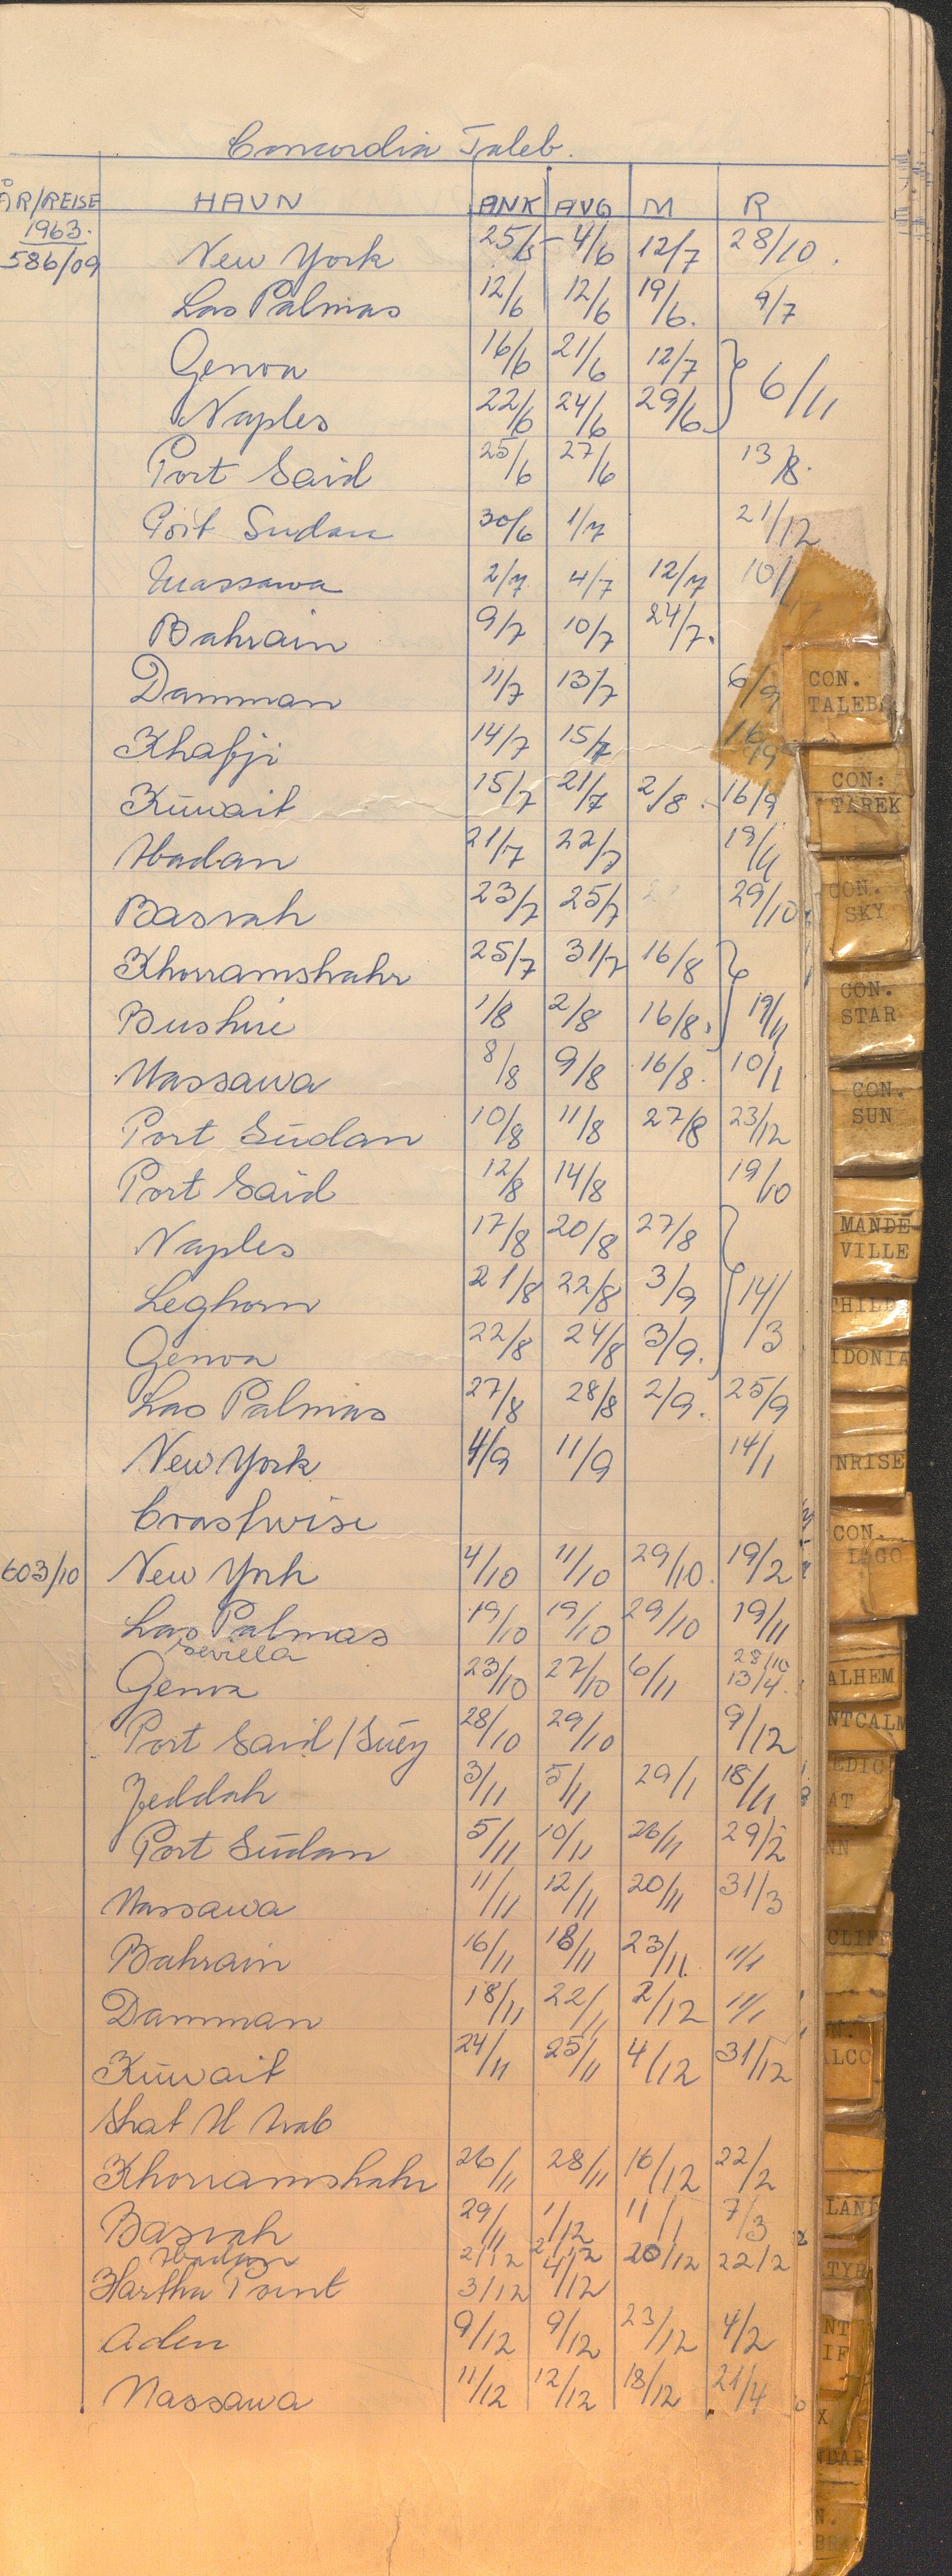 Concordia Taleb.
ÅR/REISE HAVN ANK AVG M R
1963.
586/09 New York 25/5 4/6 12/7 28/10.
Las Palmas 12/6 12/6 19/6. 9/7
Genoa 16/6 21/6 12/7 } 6/11
Naples 22/6 24/6 29/6.
Port Said 25/6 27/6 13/8.
Port Sudan 30/6 1/7 21/12
Massawa 2/7 4/7 12/7 10/
Bahrain 9/7 10/7 24/7.
Damman 11/7 13/7 6/9
Khafji 14/7 15/7 16/9
Kuwait 15/7 21/7 2/8. 16/9
Abadan 21/7 22/7 19/11
Basrah 23/7 25/7 29/10
Khorramshahr 25/7 31/7 16/8 }
Bushire 1/8 2/8 16/8. 19/11
Massawa 8/8 9/8 16/8. 10/1
Port Sudan 10/8 11/8 27/8 23/12
Port Said 12/8 14/8 19/10
Naples 17/8 20/8 27/8 }
Leghorn 21/8 22/8 3/9 14/3
Genoa 22/8 24/8 3/9.
Las Palmas 27/8 28/8 2/9. 25/9
New York 4/9 11/9 14/1
Coastwise
603/10 New York 4/10 11/10 29/10. 19/2
Las Palmas 19/10 19/10 29/10 19/11
Sevilla 28/10
Genoa 23/10 27/10 6/11 13/4.
Port Said/Suez 28/10 29/10 9/12
Jeddah 3/11 5/11 29/1 18/11
Port Sudan 5/11 10/11 26/11 29/2
Massawa 11/11 12/11 20/11 31/3
Bahrain 16/11 18/11 23/11. 11/1
Damman 18/11 22/11 2/12 11/1
Kuwait 24/11 25/11 4/12 31/12
Shat Al Arab
Khorramshahr 26/11 28/11 16/12 22/2
Basrah 29/11 1/12 11/1 7/3
Abadan 2/12 2/12 20/12 22/2
Hartha Point 3/12 4/12
Aden 9/12 9/12 23/12 4/2
Massawa 11/12 12/12 18/12 21/4
CON.
TALEB
CON:
TAREK
CON.
SKY
CON.
STAR
CON.
SUN
MANDE
VILLE
THILD
IDONIA
NRISE
CON
LAGO
ALHEM
NTCALM
EDIC
AT
NN
CLIFF
N.
ALCO
LAND
TYR
NT
IF
X
NDAR
N.